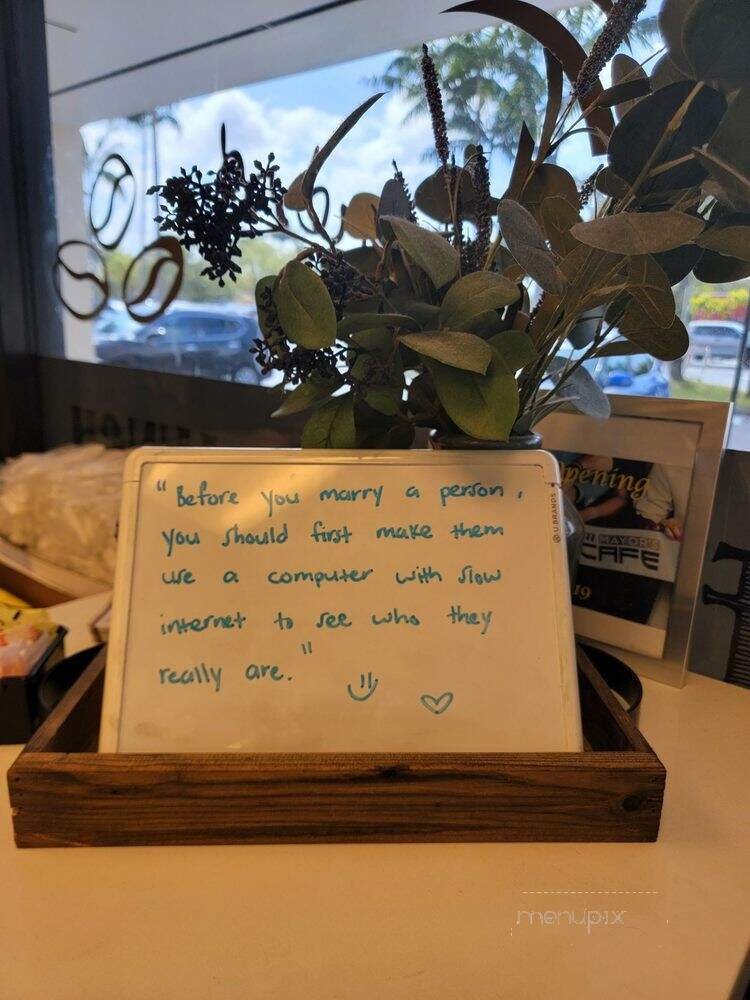 "Before you marry a person,
you should first make them
use a computer with slow
internet to see who they
really are."
U BRANDS
pening
MAYOR'S
CAFE
19
menupix